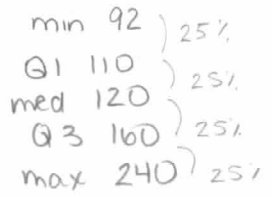 min 92
25%
Q1 110
25%
med 120
25%
Q3 160
25%
max 240